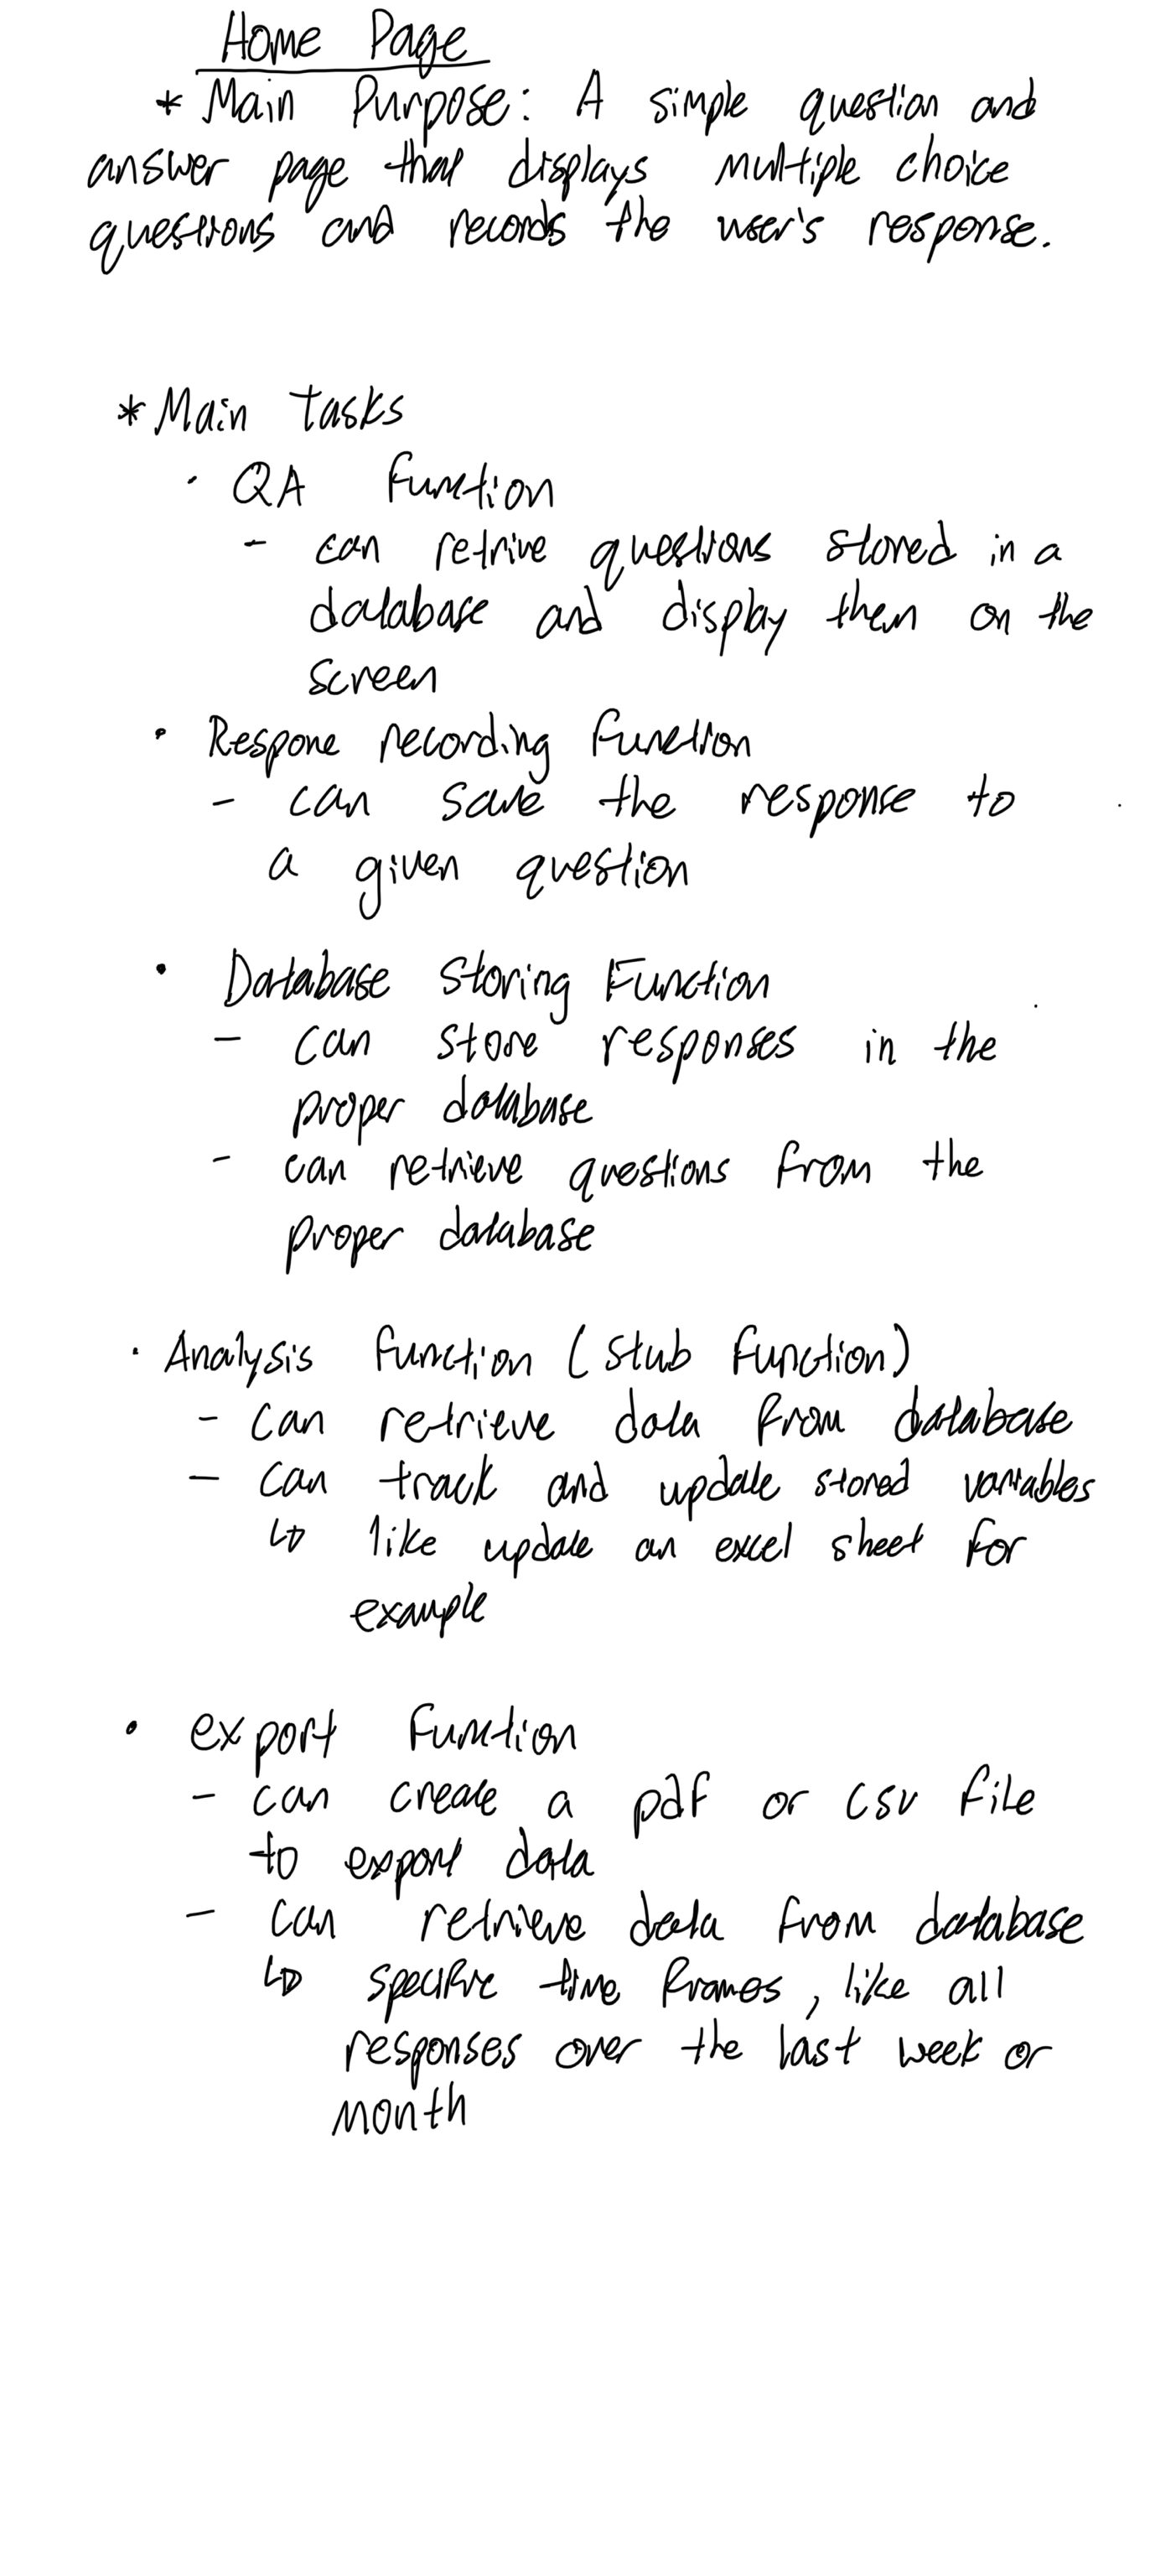 Home Page
* Main Purpose: A simple question and
answer page that displays multiple choice
questions and records the user's response.
* Main tasks
· QA function
- can retrive questions stored in a
database and display them on the
screen
· Respone recording function
- can save the response to
a given question
· Database storing Function
- can store responses in the
proper database
- can retrieve questions from the
proper database
· Analysis function (stub function)
- can retrieve data from database
- can track and update stored variables
↳ like update an excel sheet for
example
· export function
- can create a pdf or csv file
to export data
- can retrieve data from database
↳ specific time frames, like all
responses over the last week or
month